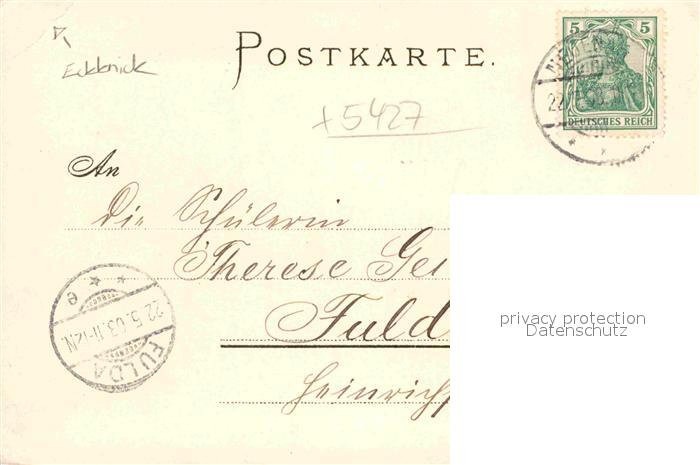 Eckknick
POSTKARTE.
5 5
DEUTSCHES REICH
+5427
An
die Schülerin
Therese Gei
Fuld
Heinrich
22.5.03.11-12N.
FULDA
privacy protection
Datenschutz